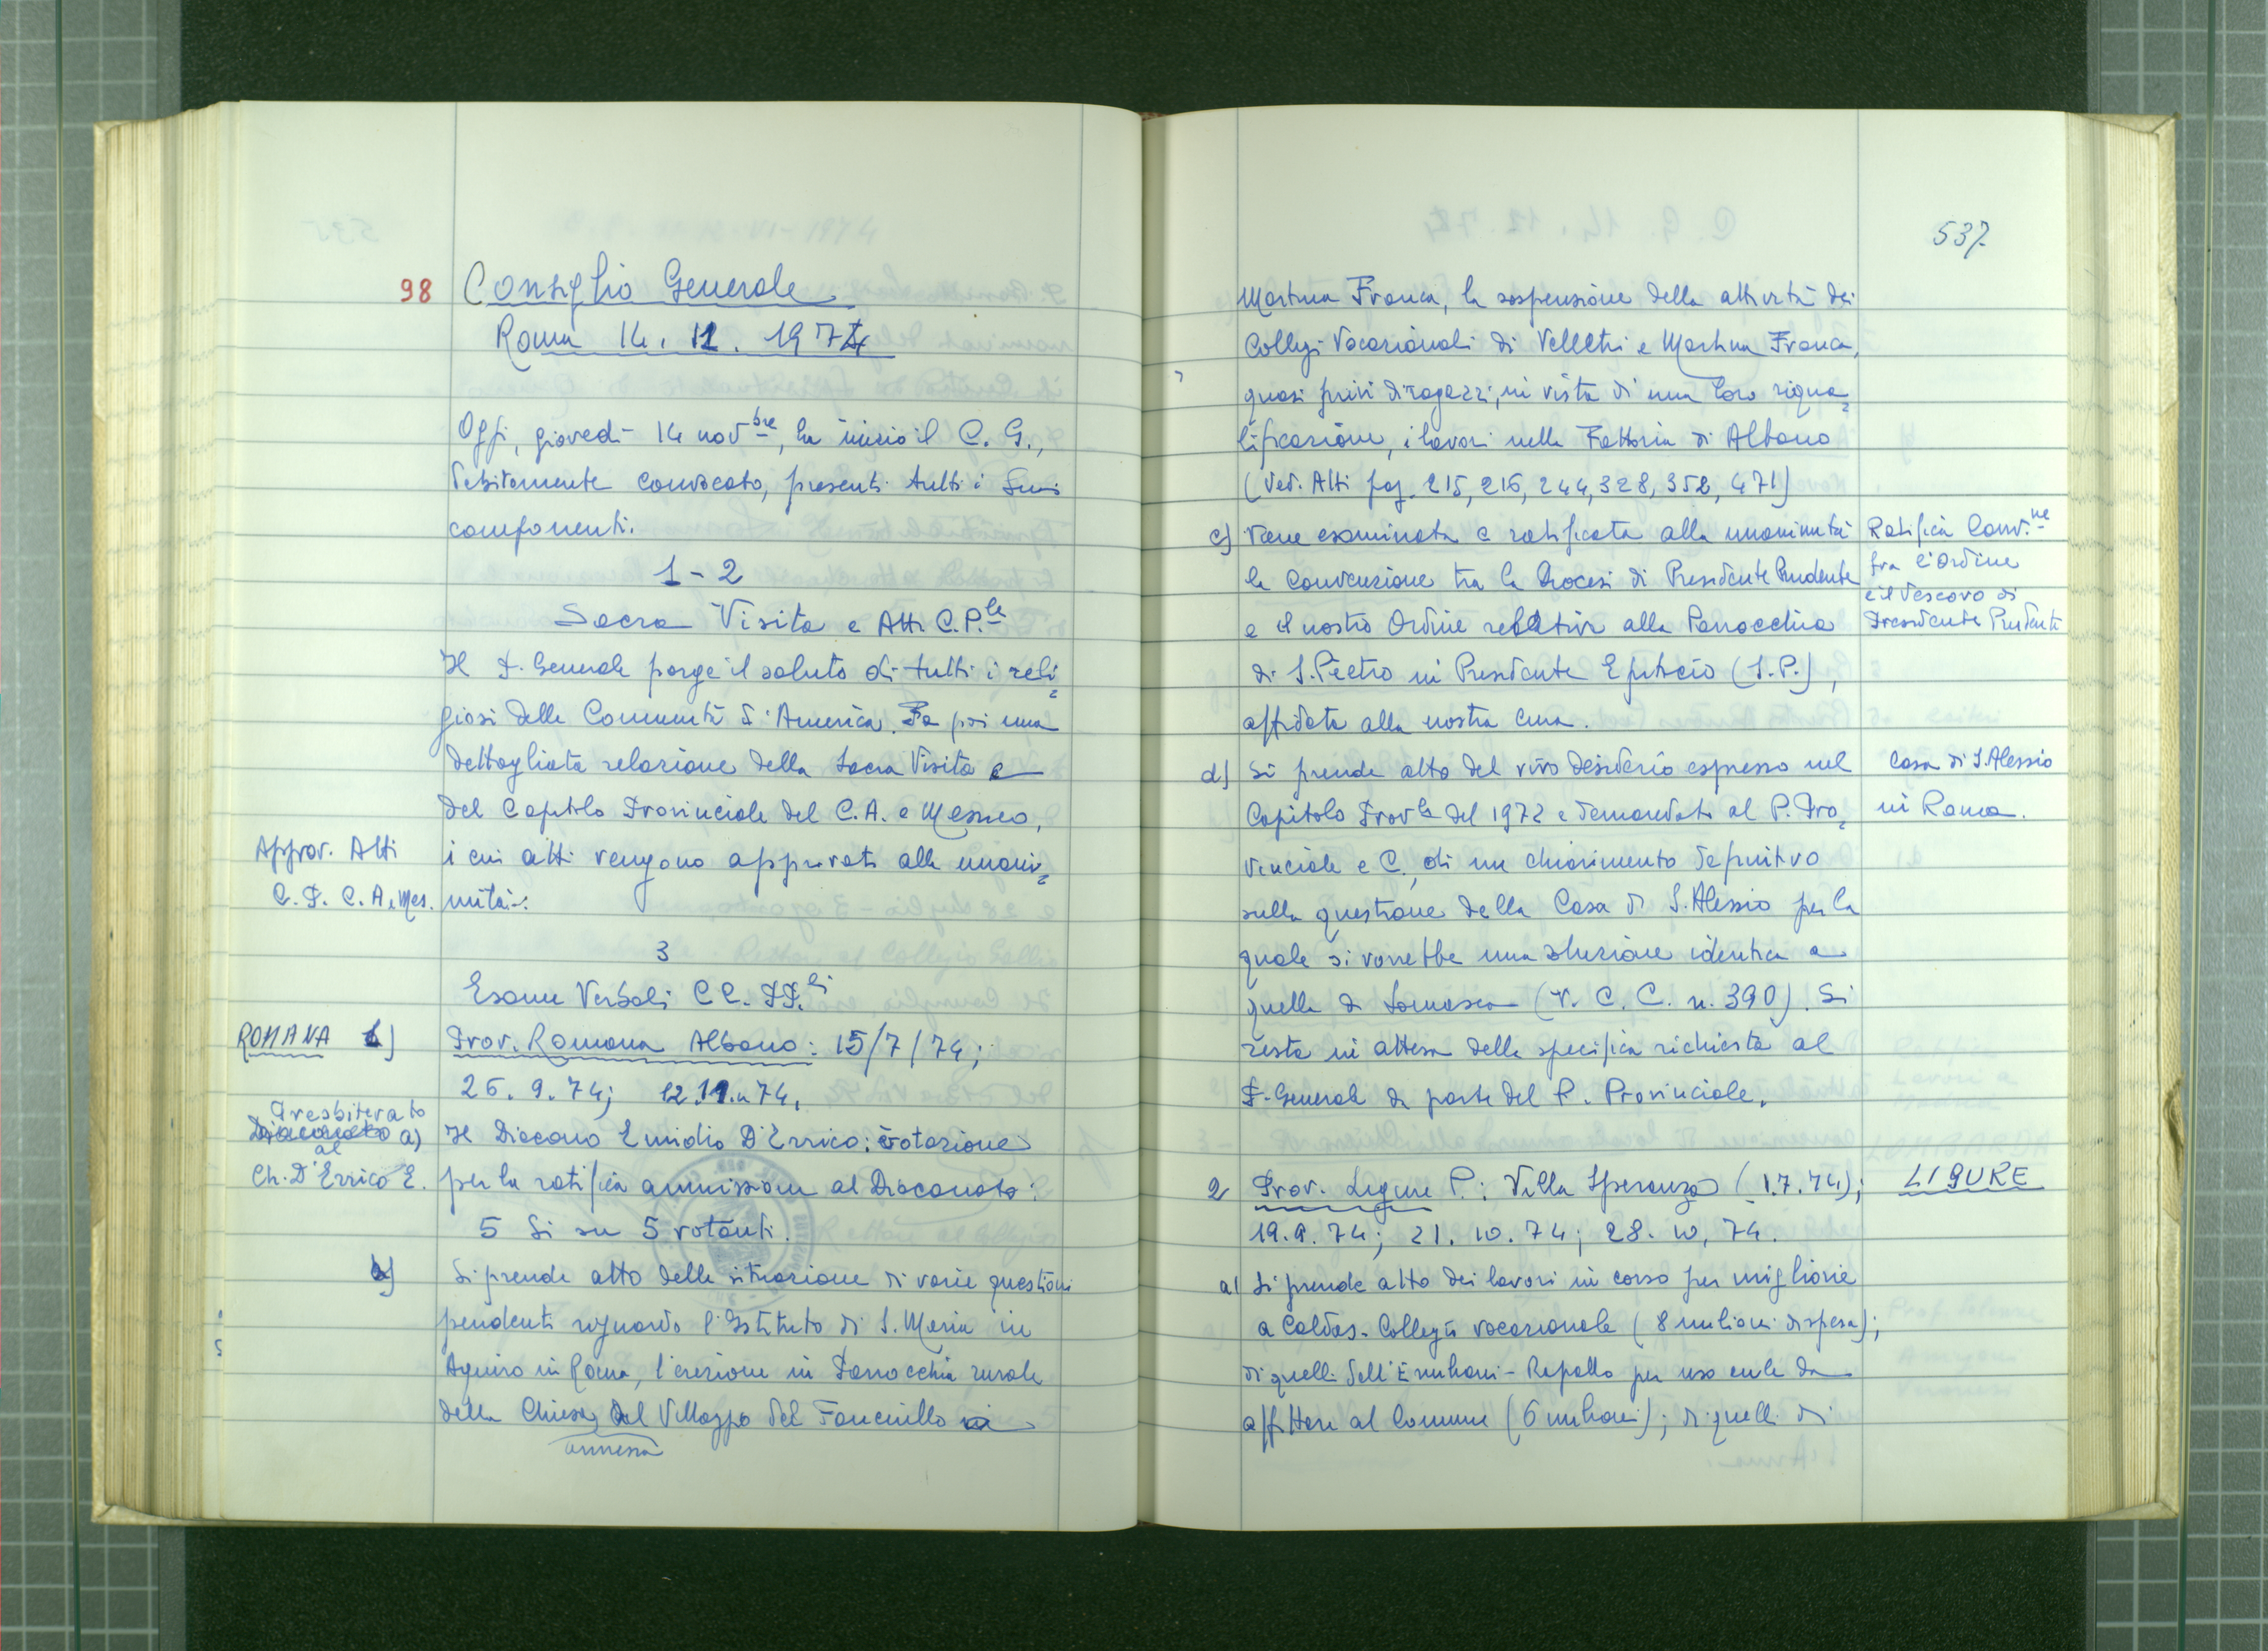 98 Consiglio Generale
Roma 14. 11. 1974
Oggi, giovedì 14 novbre, ha inizio il C. G.,
debitamente convocato, presenti tutti i suoi
componenti.
1 - 2
Sacra Visita e Atti C.P.le
Il P. Generale porge il saluto di tutti i reli=
giosi delle Comunità d'America. Fa poi una
dettagliata relazione della Sacra Visita e
del Capitolo Provinciale del C.A. e Messico,
Approv. Atti
C. P. C. A. e Mes.
i cui atti vengono approvati alla unani=
mità.
3
Esame Verbali CC. PP.li
ROMANA 1)
Prov. Romana Albano: 15/7/74;
26. 9. 74; 12.11.74.
Presbiterato
Diaconato a)
al
Ch. D'Errico E.
Il Diacono Emidio D'Errico: votazione
per la ratifica ammissione al Diaconato:
5 Si su 5 votanti.
b) Si prende atto della situazione di varie questioni
pendenti riguardo l'Istituto di S. Maria in
Aquiro in Roma, l'erezione in Parrocchia rurale
della Chiesa del Villaggio del Fanciullo
annessa
537
Martina Franca, la sospensione della attività dei
Collegi Vocazionali di Velletri e Martina Franca,
quasi privi di ragazzi, in vista di una loro riqua=
lificazione, i lavori nella Fattoria di Albano
(Ved. Atti pag. 215, 216, 244, 328, 352, 471)
c) Viene esaminata e ratificata alla unanimità
la Convenzione tra la Diocesi di Presidente Prudente
e il nostro Ordine relativa alla Parrocchia
di S. Pietro in Presidente Epitacio (S.P.),
affidata alla nostra cura.
Ratifica Conv.ne
fra l'Ordine
e il Vescovo di
Presidente Prudente
d) Si prende atto del vivo desiderio espresso nel
Capitolo Prov.le del 1972 e demandato al P. Pro=
vinciale e C., di un chiarimento definitivo
sulla questione della Casa di S. Alessio per la
quale si vorrebbe una soluzione identica a
quella di Somasca (V. C. C. n. 390). Si
resta in attesa della specifica richiesta al
P. Generale da parte del P. Provinciale.
Casa di S. Alessio
in Roma.
2 Prov. Ligure P.: Villa Speranza (1.7.74);
19.9.74; 21. 10. 74; 28. 10. 74.
LIGURE
a) Si prende atto dei lavori in corso per migliorie
a Caldas - Collegio vocazionale (8 milioni di spesa);
di quelli dell'Emiliani - Rapallo per uso aule da
affittare al Comune (6 milioni); di quelli di